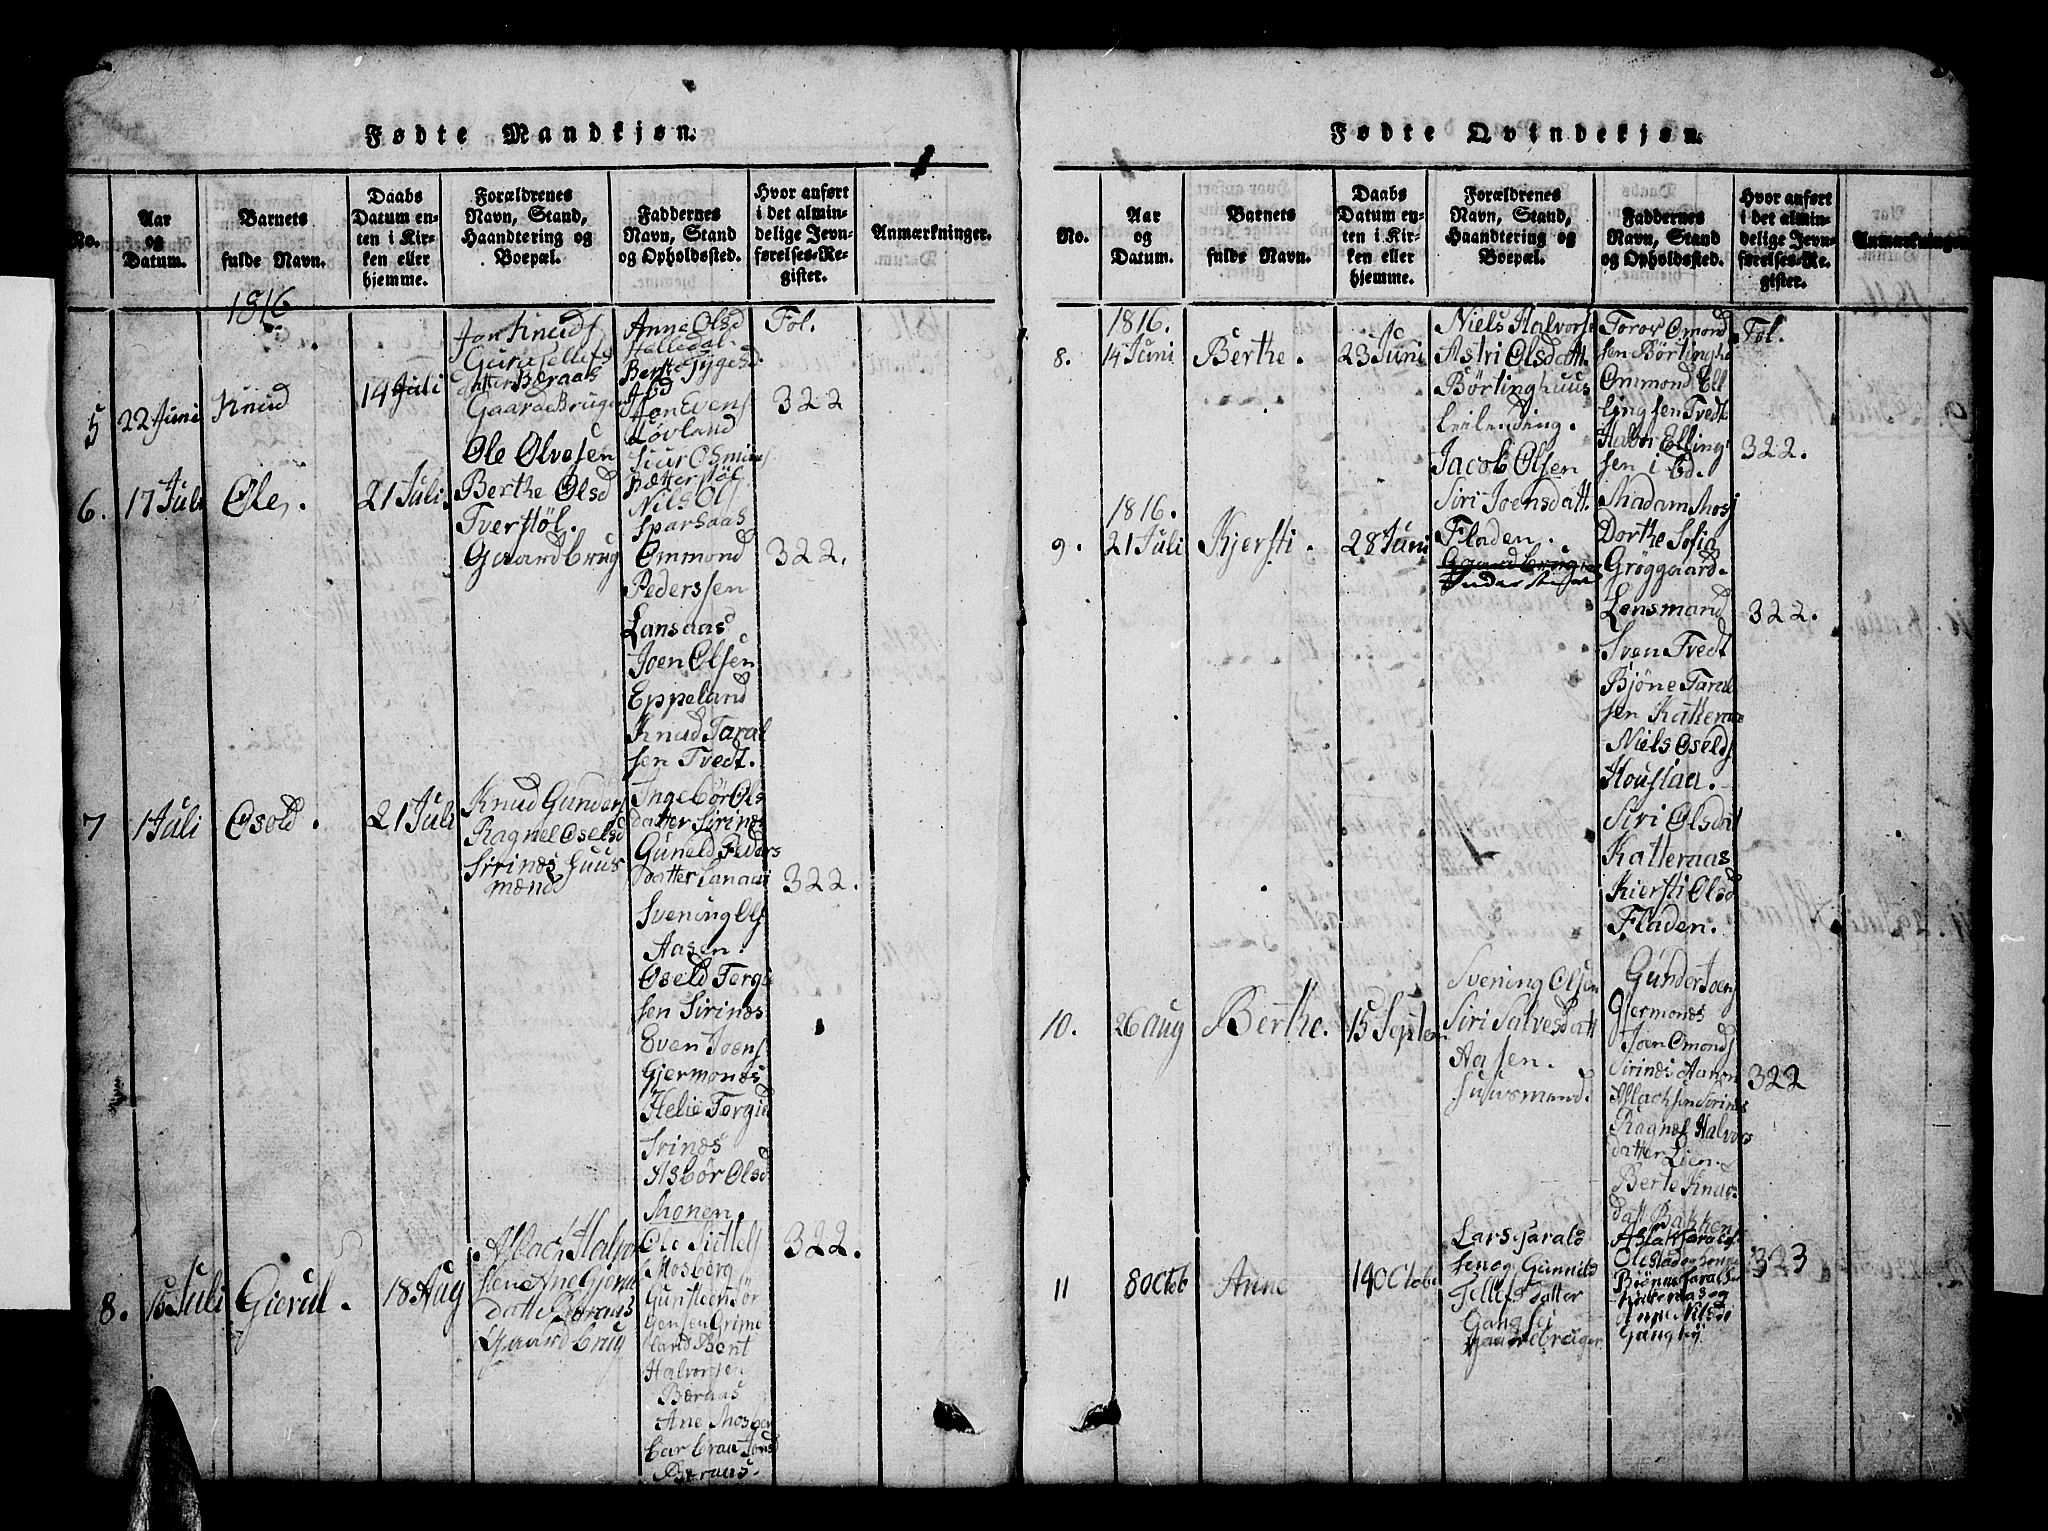 Fødte Mandkjøn.
No.
Aar
og
Datum.
Barnets
fulde Navn.
Daabs
Datum en-
ten i Kir-
ken eller
hjemme.
Forældrenes
Navn, Stand,
Haandtering og
Boepæl.
Faddernes
Navn, Stand
og Opholdssted.
Hvor anført
i det almin-
delige Jevn-
førelses-Re-
gister.
Anmærkninger.
1816
5
22 Juni
Knud
14 Juli
Jon Knuds
datter Bæraas
Gaardbruger
Anne Olsd
Halledal
Jon Evens
Løvland
Fol.
322
6.
17 Juli
Ole
21 Juli
Ole Olvesen
Berthe Olsd
Tverstøl.
Gaardbrug
Nils Ols
Sparsaas
Ommond
Pedersen
Lansaas
Joen Olsen
Eppeland
Knud Taral
sen Tvedt.
322.
7
1 Juli
Osold.
21 Juli
Knud Gunders
Ragnel Oselsd
Sirinæs Huus
mænd
Ingebør Ols
datter Sirinæs
Guneld Peders
datter Lanaas
Svening Ols
Aasen.
Oseld Torgi
sen Sirinæs
Even Joens
Gjermonæs
Helie Torgie
Srinæs
Asbør Olsd
Monen.
322.
8.
Juli
Gierul.
18 Aug
Aslach Halvor
sen Ane Gjerul
datter Beraas
Gaardbrug
Ole Kittels
Mosberg
Halvorsen
Bæraas
Ane Mosber
Beraas
322.
Fødte Qvindekjøn.
No.
Aar
og
Datum.
Barnets
fulde Navn.
Daabs
Datum en-
ten i Kir-
ken eller
hjemme.
Forældrenes
Navn, Stand,
Haandtering og
Boepæl.
Faddernes
Navn, Stand
og Opholdssted.
Hvor anført
i det almin-
delige Jevn-
førelses-Re-
gister.
Anmærkninger
8.
1816.
14 Juni
Berthe.
23 Juni
Niels Halvors
Astri Olsdatt.
Børtinghuus
Leilending.
Torov Omond
sen Børtinghu
Ommond Ell
lingsen Tvedt
Halvor Elling
sen i Ed.
Fol.
322.
9.
1816.
21 Juli
Kjersti.
28 Juni
Jacob Olsen
Siri Joensdatt.
Fladen.
Madam Mosj
Dorthe Sofia
Grøggaard.
Lensmand
Sven Tvedt
Bjöne Taral
sen Katteraas
Niels Oselds
Houslaa.
Siri Olsdat
Katteraas
Kiersti Olsd
Fladen.
322.
10.
26 Aug
Berthe.
15 Septem
Svening Olsen
Siri Salvesdatt
Aasen.
Huusmand.
Gunder Joens
Gjermonæs
Joen Omonds
Sirinæs
Ragnel Halvors
datter Lien
Berte Knuds
datt Bakken
322
11
8 Octob
Anne
14 Octobe
Lars Tarald
sen og Gunnild
Tellefsdatter
Gangsei
Gaardbruger
Bjönne Taralds
Katteraas og
Anne Nilsda
Gangsej
323